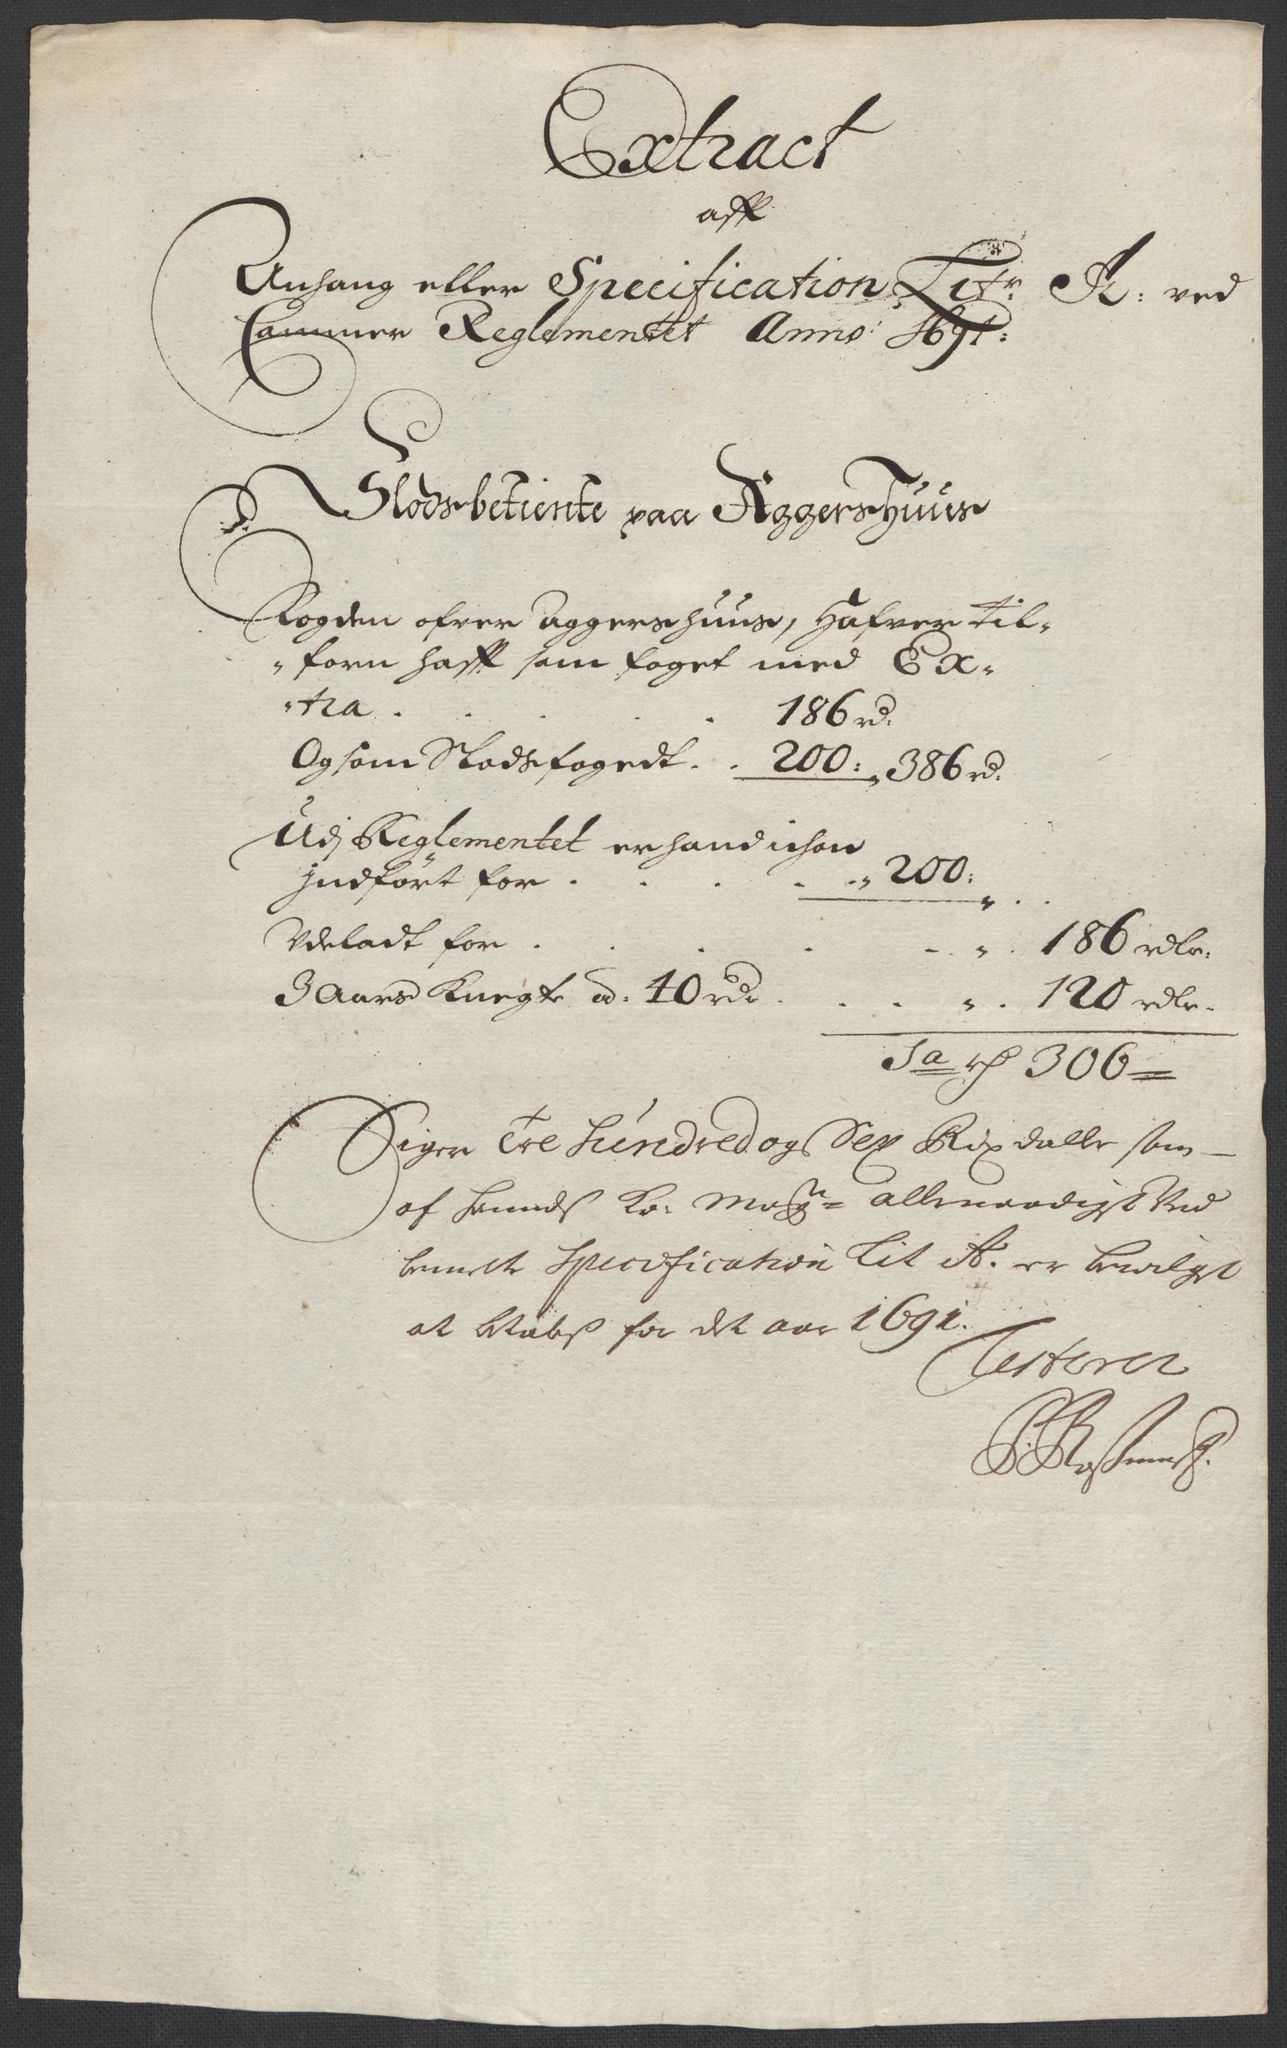 Extract
aff
Anhang eller Specification Litr A: ved
Cammer Reglementet Anno 1691:
Slodsbetiente paa Aggershuus
Fogden ofver Aggershuus, Hafver til-
forn hafft som foget med Ex-
tra . . . . . 186 rd:
Og som Slodsfogedt . . 200: 386 rd.
Udj Reglementet er hand ichon
Indført for . . . . . 200:
Udeladt for . . . . . . 186 rdlr:
3 Aars Knegte a: 40 rd: . . . . 120 rdlr.
Sa rd 306
Siger Tre hundred og Sex Rixdaller som
af hands Ko: Maytt allernaadigst ved
bemelte Specification Lit A. er bevilget
at betales for det aar 1691.
Testerer